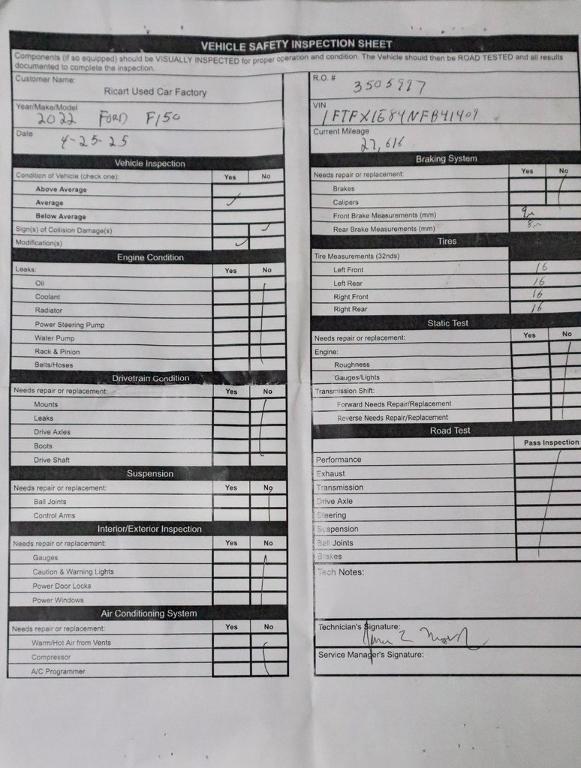 VEHICLE SAFETY INSPECTION SHEET
Components (if so equipped) should be VISUALLY INSPECTED for proper operation and condition. The Vehicle should then be ROAD TESTED and all results
documented to complete the inspection.
Customer Name:
Ricart Used Car Factory
Year/Make/Model
2022 FORD F150
Date
4-25-25
Vehicle Inspection
Condition of Vehicle (check one): Yes No
Above Average
Average ✓
Below Average
Sign(s) of Collision Damage(s) ✓
Modification(s) ✓
Engine Condition
Leaks: Yes No
Oil
Coolant
Radiator
Power Steering Pump
Water Pump
Rack & Pinion
Belts/Hoses
Drivetrain Condition
Needs repair or replacement: Yes No
Mounts
Leaks
Drive Axles
Boots
Drive Shaft
Suspension
Needs repair or replacement: Yes No
Ball Joints
Control Arms
Interior/Exterior Inspection
Needs repair or replacement: Yes No
Gauges
Caution & Warning Lights
Power Door Locks
Power Windows
Air Conditioning System
Needs repair or replacement: Yes No
Warm/Hot Air from Vents
Compressor
A/C Programmer
R.O. #
3505997
VIN
1FTFX1E84NFB41409
Current Mileage
27,616
Braking System
Needs repair or replacement: Yes No
Brakes
Calipers
Front Brake Measurements (mm) 9
Rear Brake Measurements (mm) 8
Tires
Tire Measurements (32nds)
Left Front 16
Left Rear 16
Right Front 16
Right Rear 16
Static Test
Needs repair or replacement: Yes No
Engine:
Roughness
Gauges/Lights
Transmission Shift:
Forward Needs Repair/Replacement
Reverse Needs Repair/Replacement
Road Test
Pass Inspection
Performance
Exhaust
Transmission
Drive Axle
Steering
Suspension
Ball Joints
Brakes
Tech Notes:
Technician's Signature:
Service Manager's Signature: